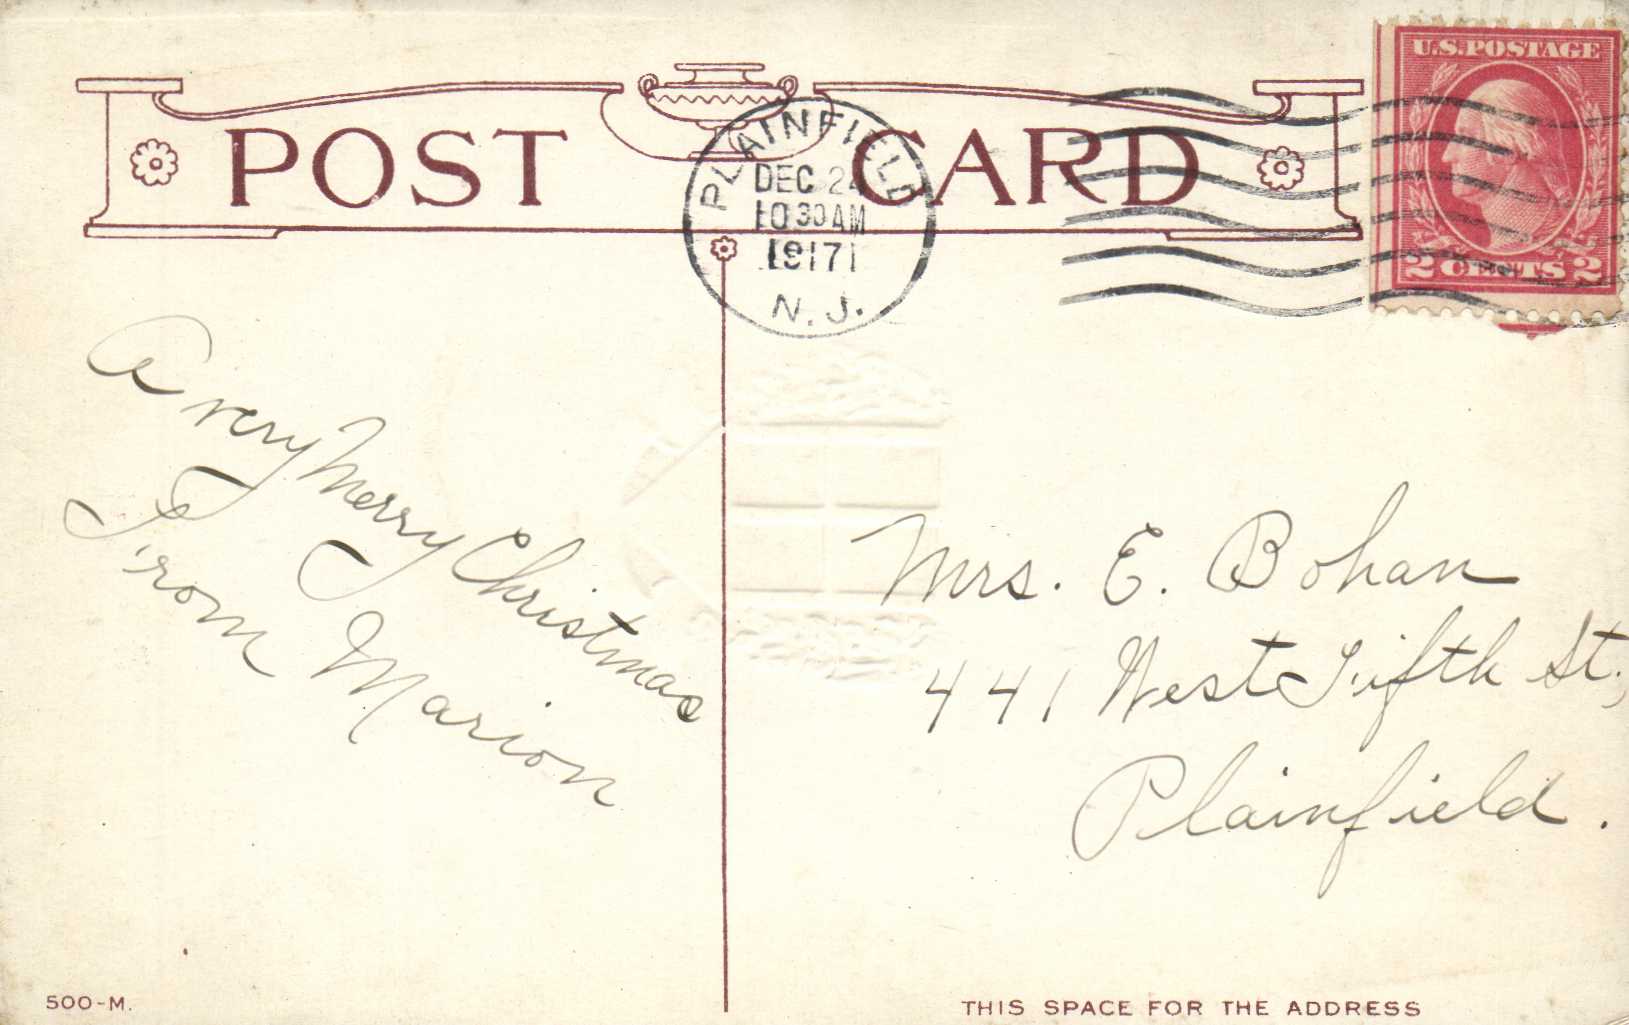 POST CARD
U.S. POSTAGE
2 CENTS 2
PLAINFIELD
DEC 24
10 30 AM
1917
N. J.
A very Merry Christmas
From Marion
Mrs. E. Bohan
441 West Fifth St.,
Plainfield.
500-M.
THIS SPACE FOR THE ADDRESS